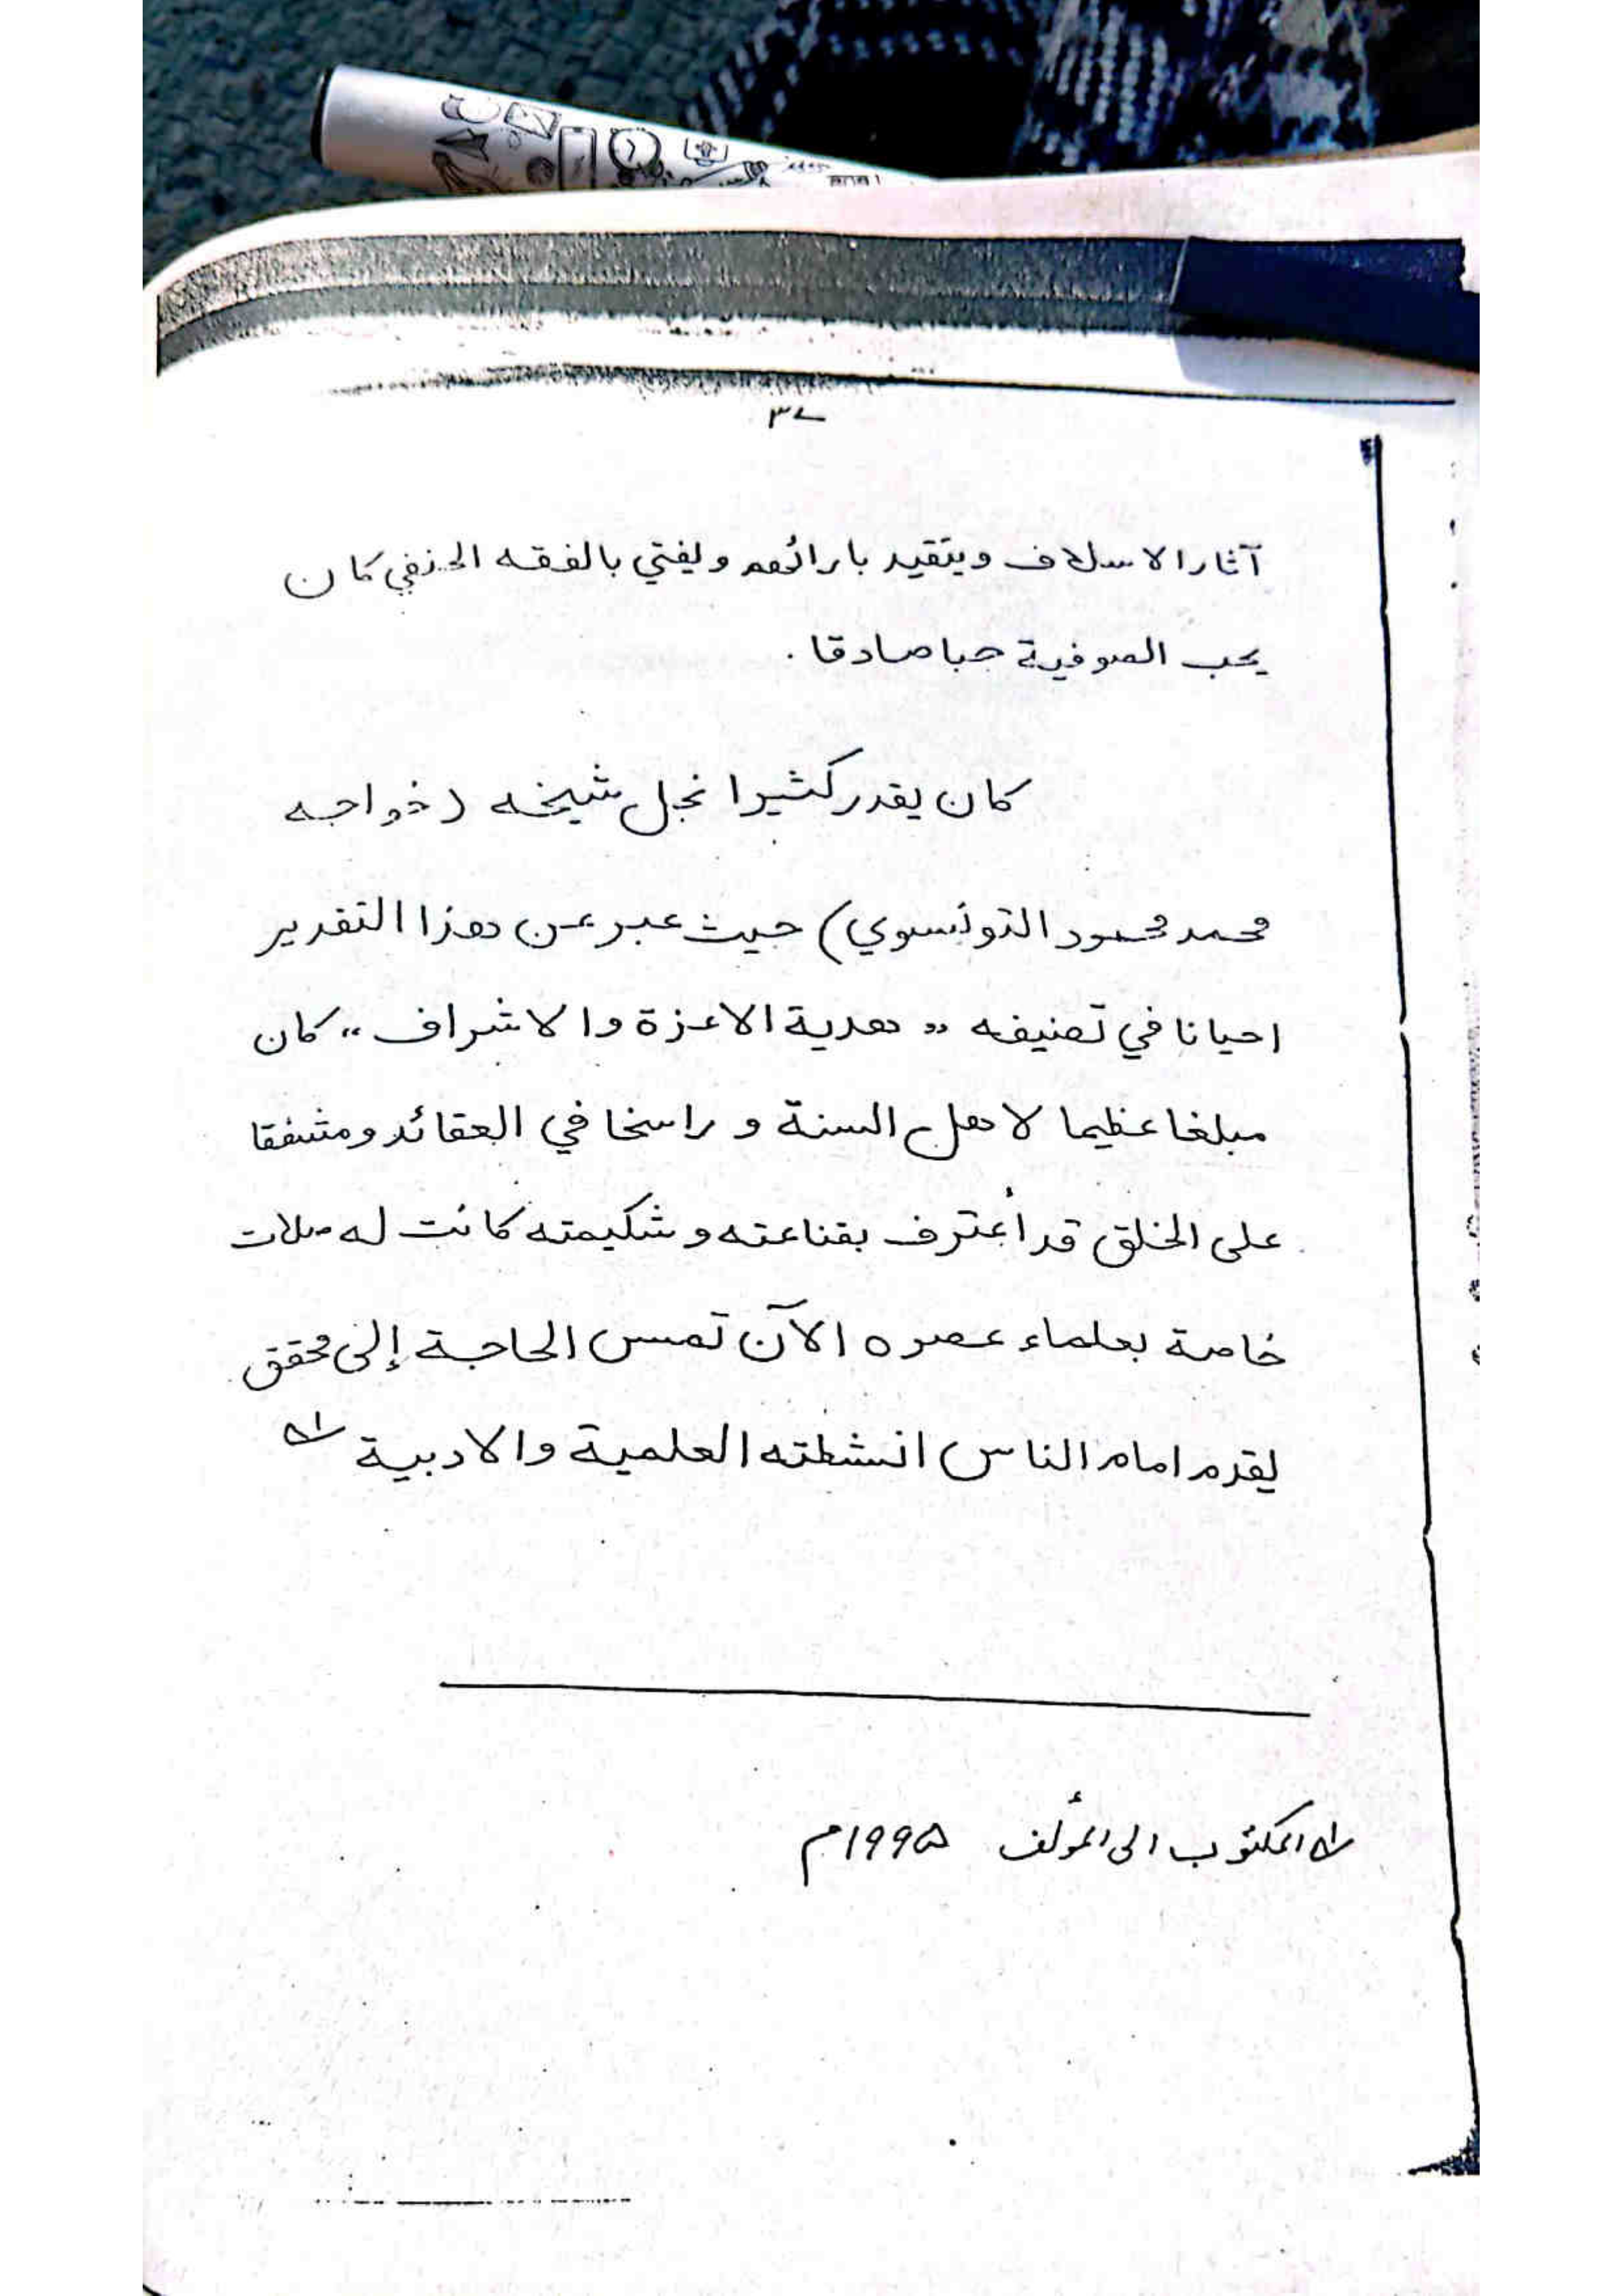 ٣٧
آثار الاسلاف ويتقيد بارائهم ويفتي بالفقه الحنفي كان
يحب الصوفية حبا صادقا .
كان يقدر كثيرا نجل شيخه (خواجه
محمد محمود التونسوي) حيث عبر عن هذا التقدير
احيانا في تصنيفه " هدية الاعزة والاشراف " كان
مبلغا عظيما لاهل السنة و راسخا في العقائد ومشفقا
على الخلق قد أعترف بقناعته و شكيمته كانت له صلات
خاصة بعلماء عصره الآن تمس الحاجة إلى محقق
يقدم امام الناس انشطته العلمية والادبية
المكتوب الى المؤلف ١٩٩۵م